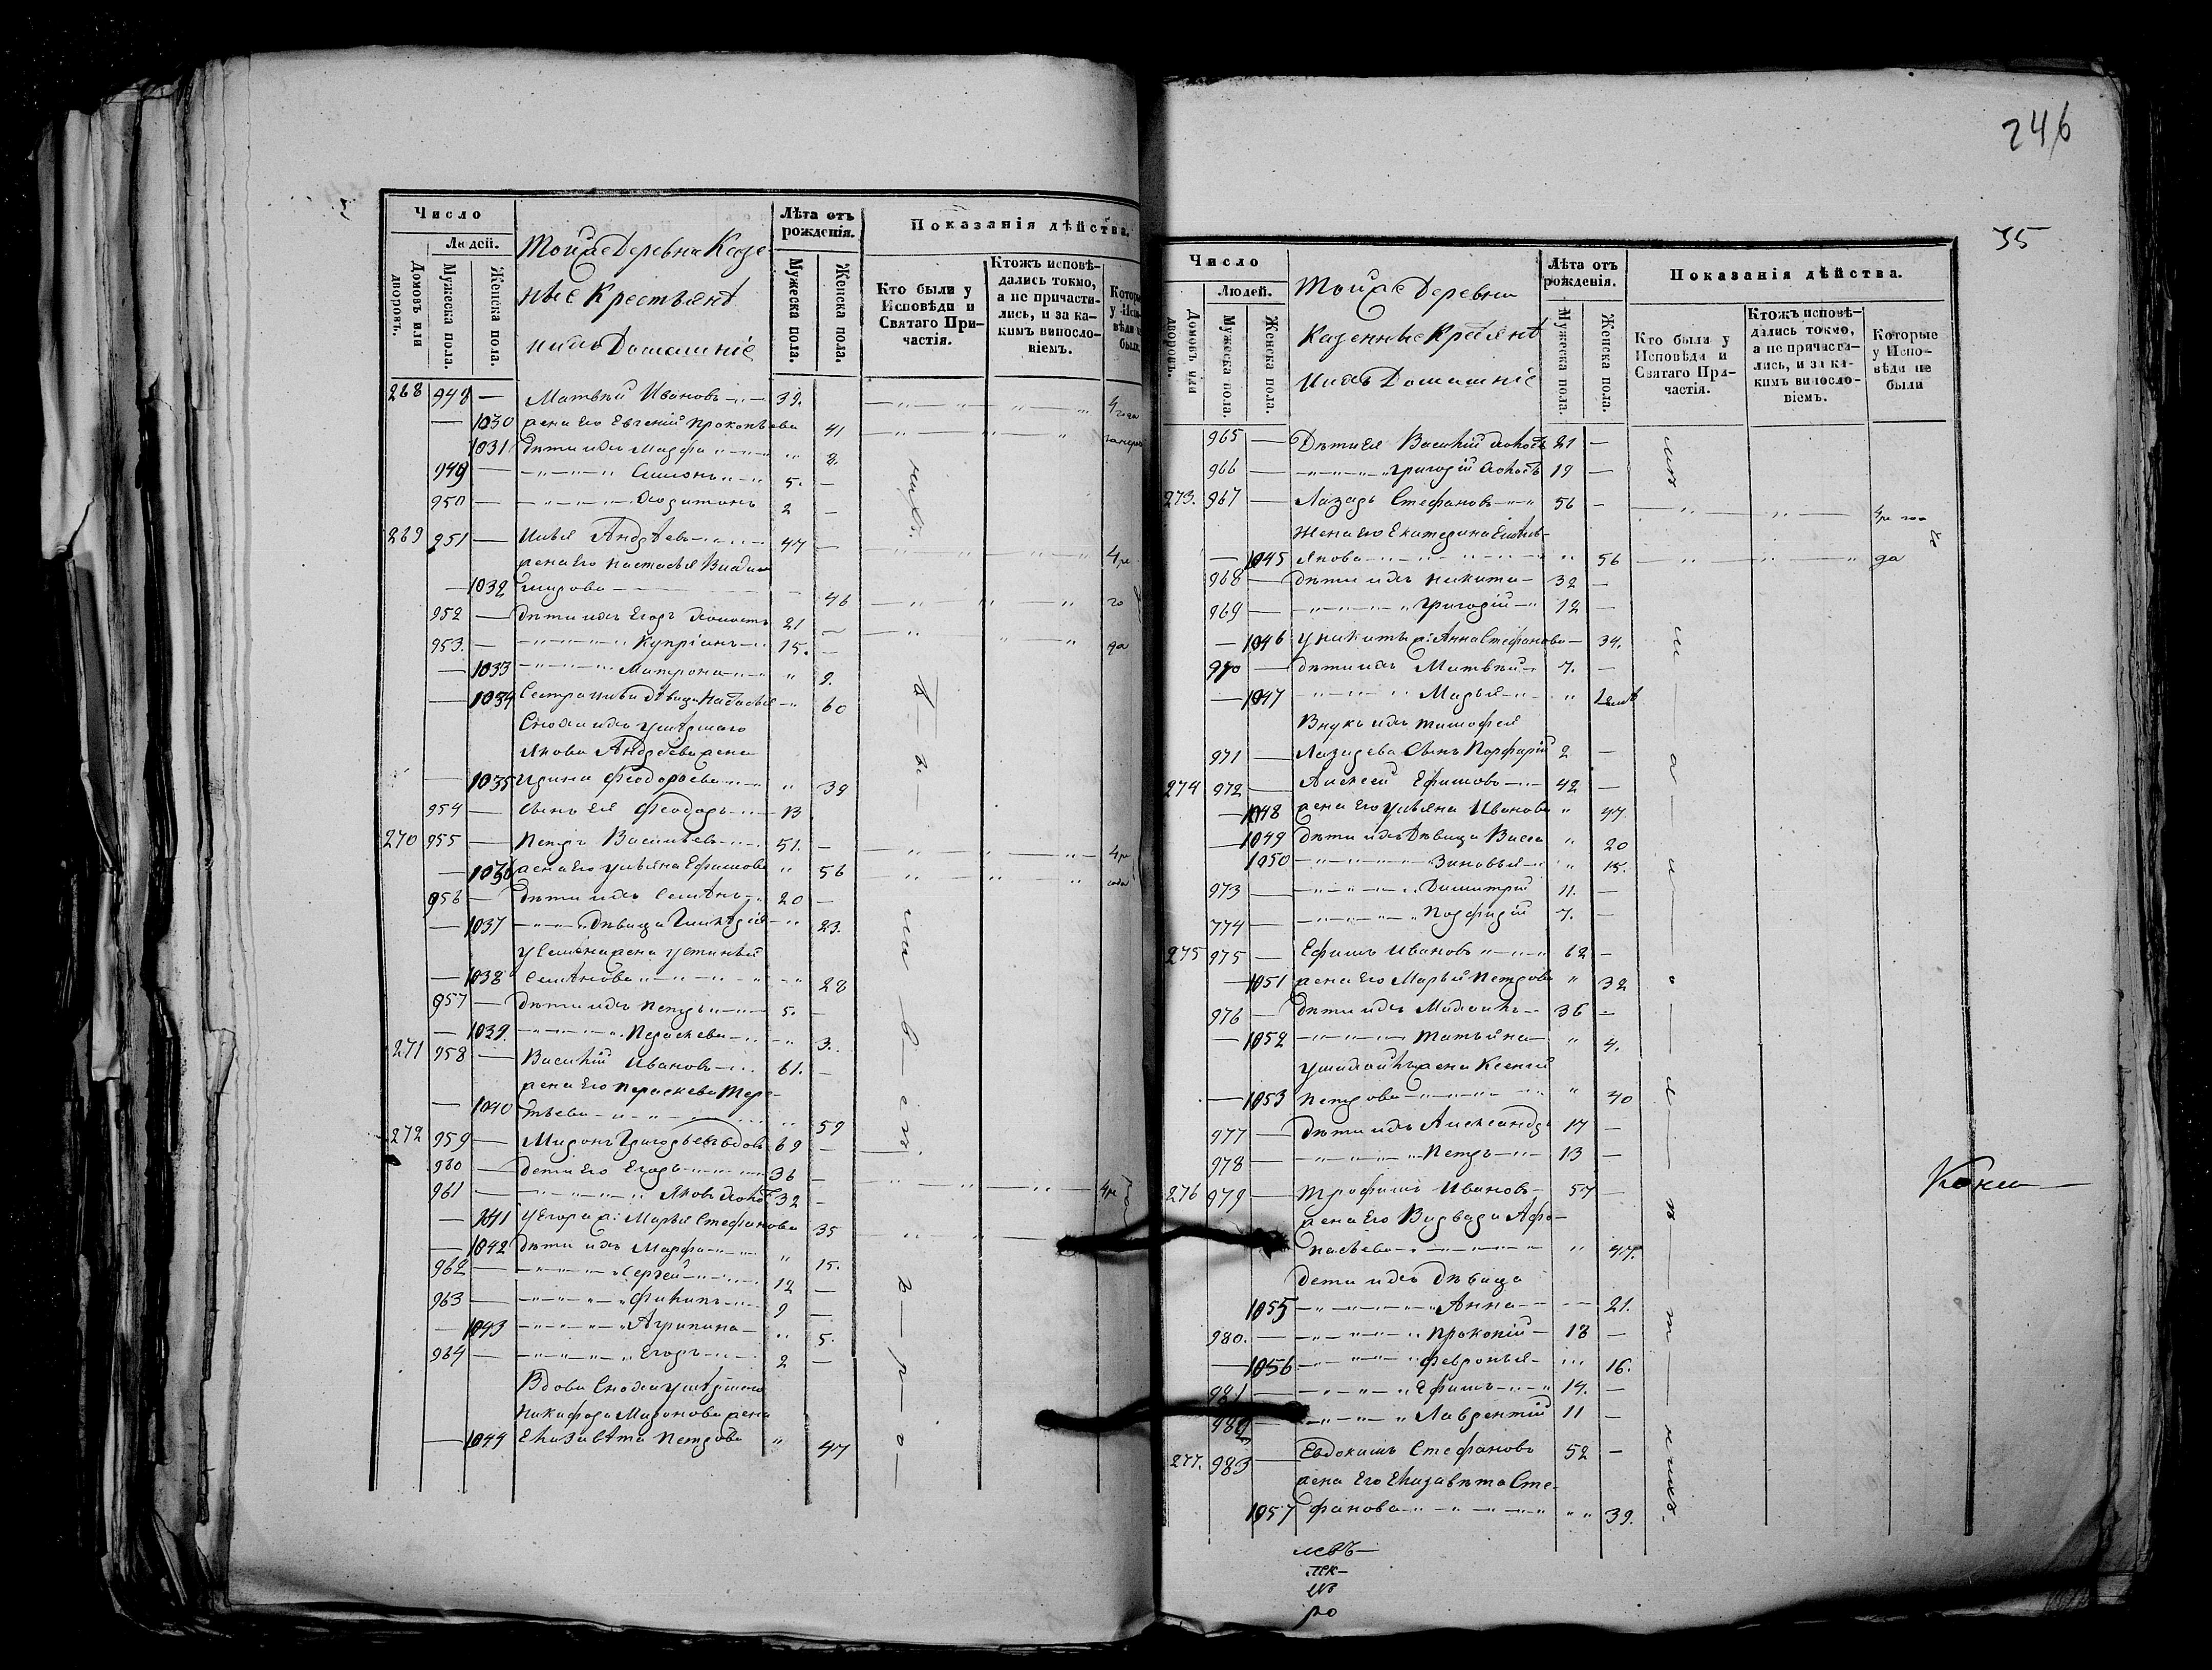 Число
Людей.
Домовъ или дворовъ.
Мужеска пола.
Женска пола.
Тойже Деревни Казе-
нные Крестьянѣ
ихъ Домашніе
Лѣта отъ рожденія.
Мужеска пола.
Женска пола.
Показанія дѣйства.
Кто были у Исповѣди и Святаго Причастія.
Ктожъ исповѣдались токмо, а не причастились, и за какимъ винословіемъ.
268 948 — Матвѣй Ивановъ 39.
— 1030 жена Его Евгенія Прокопьева 41
1031 дѣти ихъ Марфа 8.
949 — Симонъ 5. —
950 — Харитонъ 2 —
269 951 — Илья Андрѣевъ 47 — 4ре
жена Его Настасья Влади-
— 1032 мирова 46 го
952 — дѣти ихъ Егоръ холостъ 21 —
953. — Купріянъ 15. — да
— 1033 Матрона 9.
— 1034 Сестра Ильи дѣвица Наталья 60
Сноха ихъ умершаго
Якова Андреева жена
— 1035 Ирина Феодорова 39
954 — сынъ Ея Феодоръ 13
270 955 — Петръ Васильевъ 51. — 4ре
— 1036 жена Его Ульяна Ефимова 56 года
956 — дѣти ихъ Семенъ 20 —
— 1037 дѣвица Гликерія 23.
у Семена жена Устинья
— 1038 Семенова 28
957 — дѣти ихъ Петръ 5. —
— 1039. Параскева 3.
271 958 — Василій Ивановъ 61. —
жена Его Параскева Тере-
— 1040 нтьева 59
272 959 — Миронъ Григорьевъ вдовъ 69 —
960 — дети Его Егоръ 36 —
961 — Яковъ холостъ 32 — 4ре
— 1041 у Егора ж: Марья Стефанова 35
— 1042 дѣти ихъ Марфа 15.
962 — Сергей 12 —
963 — Филипъ 9 —
— 1043 Агрипина 5.
964 — Егоръ 2 —
Вдова Сноха умершаго
Никифора Миронова жена
— 1044 Елизавѣта Петрова 47
246
35
Число
Людей.
Домовъ или дворовъ.
Мужеска пола.
Женска пола.
Тойже Деревни
Казенные Крестьянѣ
ихъ Домашніе
Лѣта отъ рожденія.
Мужеска пола.
Женска пола.
Показанія дѣйства.
Кто были у Исповѣди и Святаго Причастія.
Ктожъ исповѣдались токмо, а не причастились, и за какимъ винословіемъ.
Которые у Исповѣди не были
965 — Дѣти Ея Василій холостъ 21 —
966 — Григорій холостъ 19 —
273. 967 — Лазарь Стефановъ 56 — 4ре го
Жена Его Екатерина Емель-
— 1045 янова 56 да
968 — дѣти ихъ Никита 32 —
969 — Григорій 12 —
— 1046 у Никиты ж: Анна Стефанова 34.
970 — дѣти ихъ Матвѣй 7. —
— 1047 Марья
Внукъ ихъ Тимофея
971 Лазарева Сынъ Порфирій 2 —
274 972 — Алексей Ефимовъ 42 —
— 1048 жена Его Ульяна Иванова 47.
— 1049 дѣти ихъ Дѣвица Васса 20
1050 Зиновья 15.
973 — Димитрій 11. —
774 — Порфирій 7. —
275 975 — Ефимъ Ивановъ 62 —
— 1051 жена Его Марья Петрова 32
976 — дѣти ихъ Михаилъ 36 —
— 1052 Татьяна 4.
у Михаила жена Ксенія
— 1053 Петрова 40
977 — дѣти ихъ Александръ 17 —
978 — Петръ 13 —
276 979 — Трофимъ Ивановъ 57 —
жена Его Варвара Афа-
насьева 47.
дети ихъ дѣвица
1055 Анна 21.
980. — Прокопій 18 —
— 1056 Февронья 16.
981 — Ефимъ 14. —
982 — Лаврентій 11 —
277. 983 — Евдокимъ Стефановъ 52 —
жена Его Елизавѣта Сте-
1057 фанова 39.